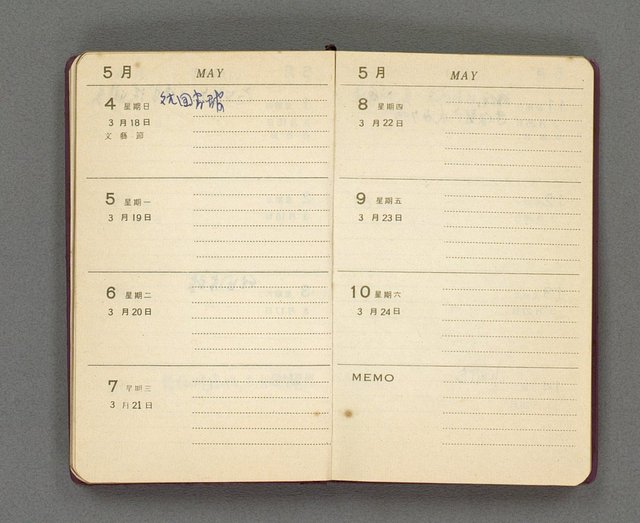 5 月 MAY
4 星期日
3 月 18 日
文藝節
5 星期一
3 月 19 日
6 星期二
3 月 20 日
7 星期三
3 月 21 日
5 月 MAY
8 星期四
3 月 22 日
9 星期五
3 月 23 日
10 星期六
3 月 24 日
MEMO